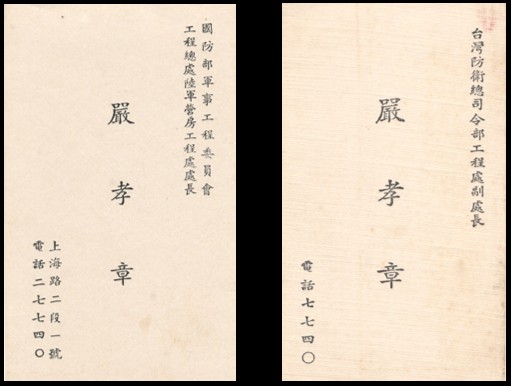 國防部軍事工程委員會
工程總處陸軍營房工程處處長
嚴孝章
上海路二段一號
電話二七七四〇
台灣防衛總司令部工程處副處長
嚴孝章
電話七七四〇